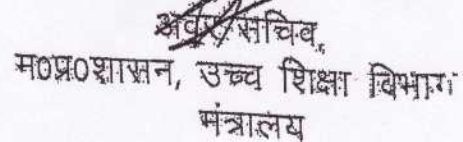 अवर सचिव,
म०प्र०शासन, उच्च शिक्षा विभाग
मंत्रालय